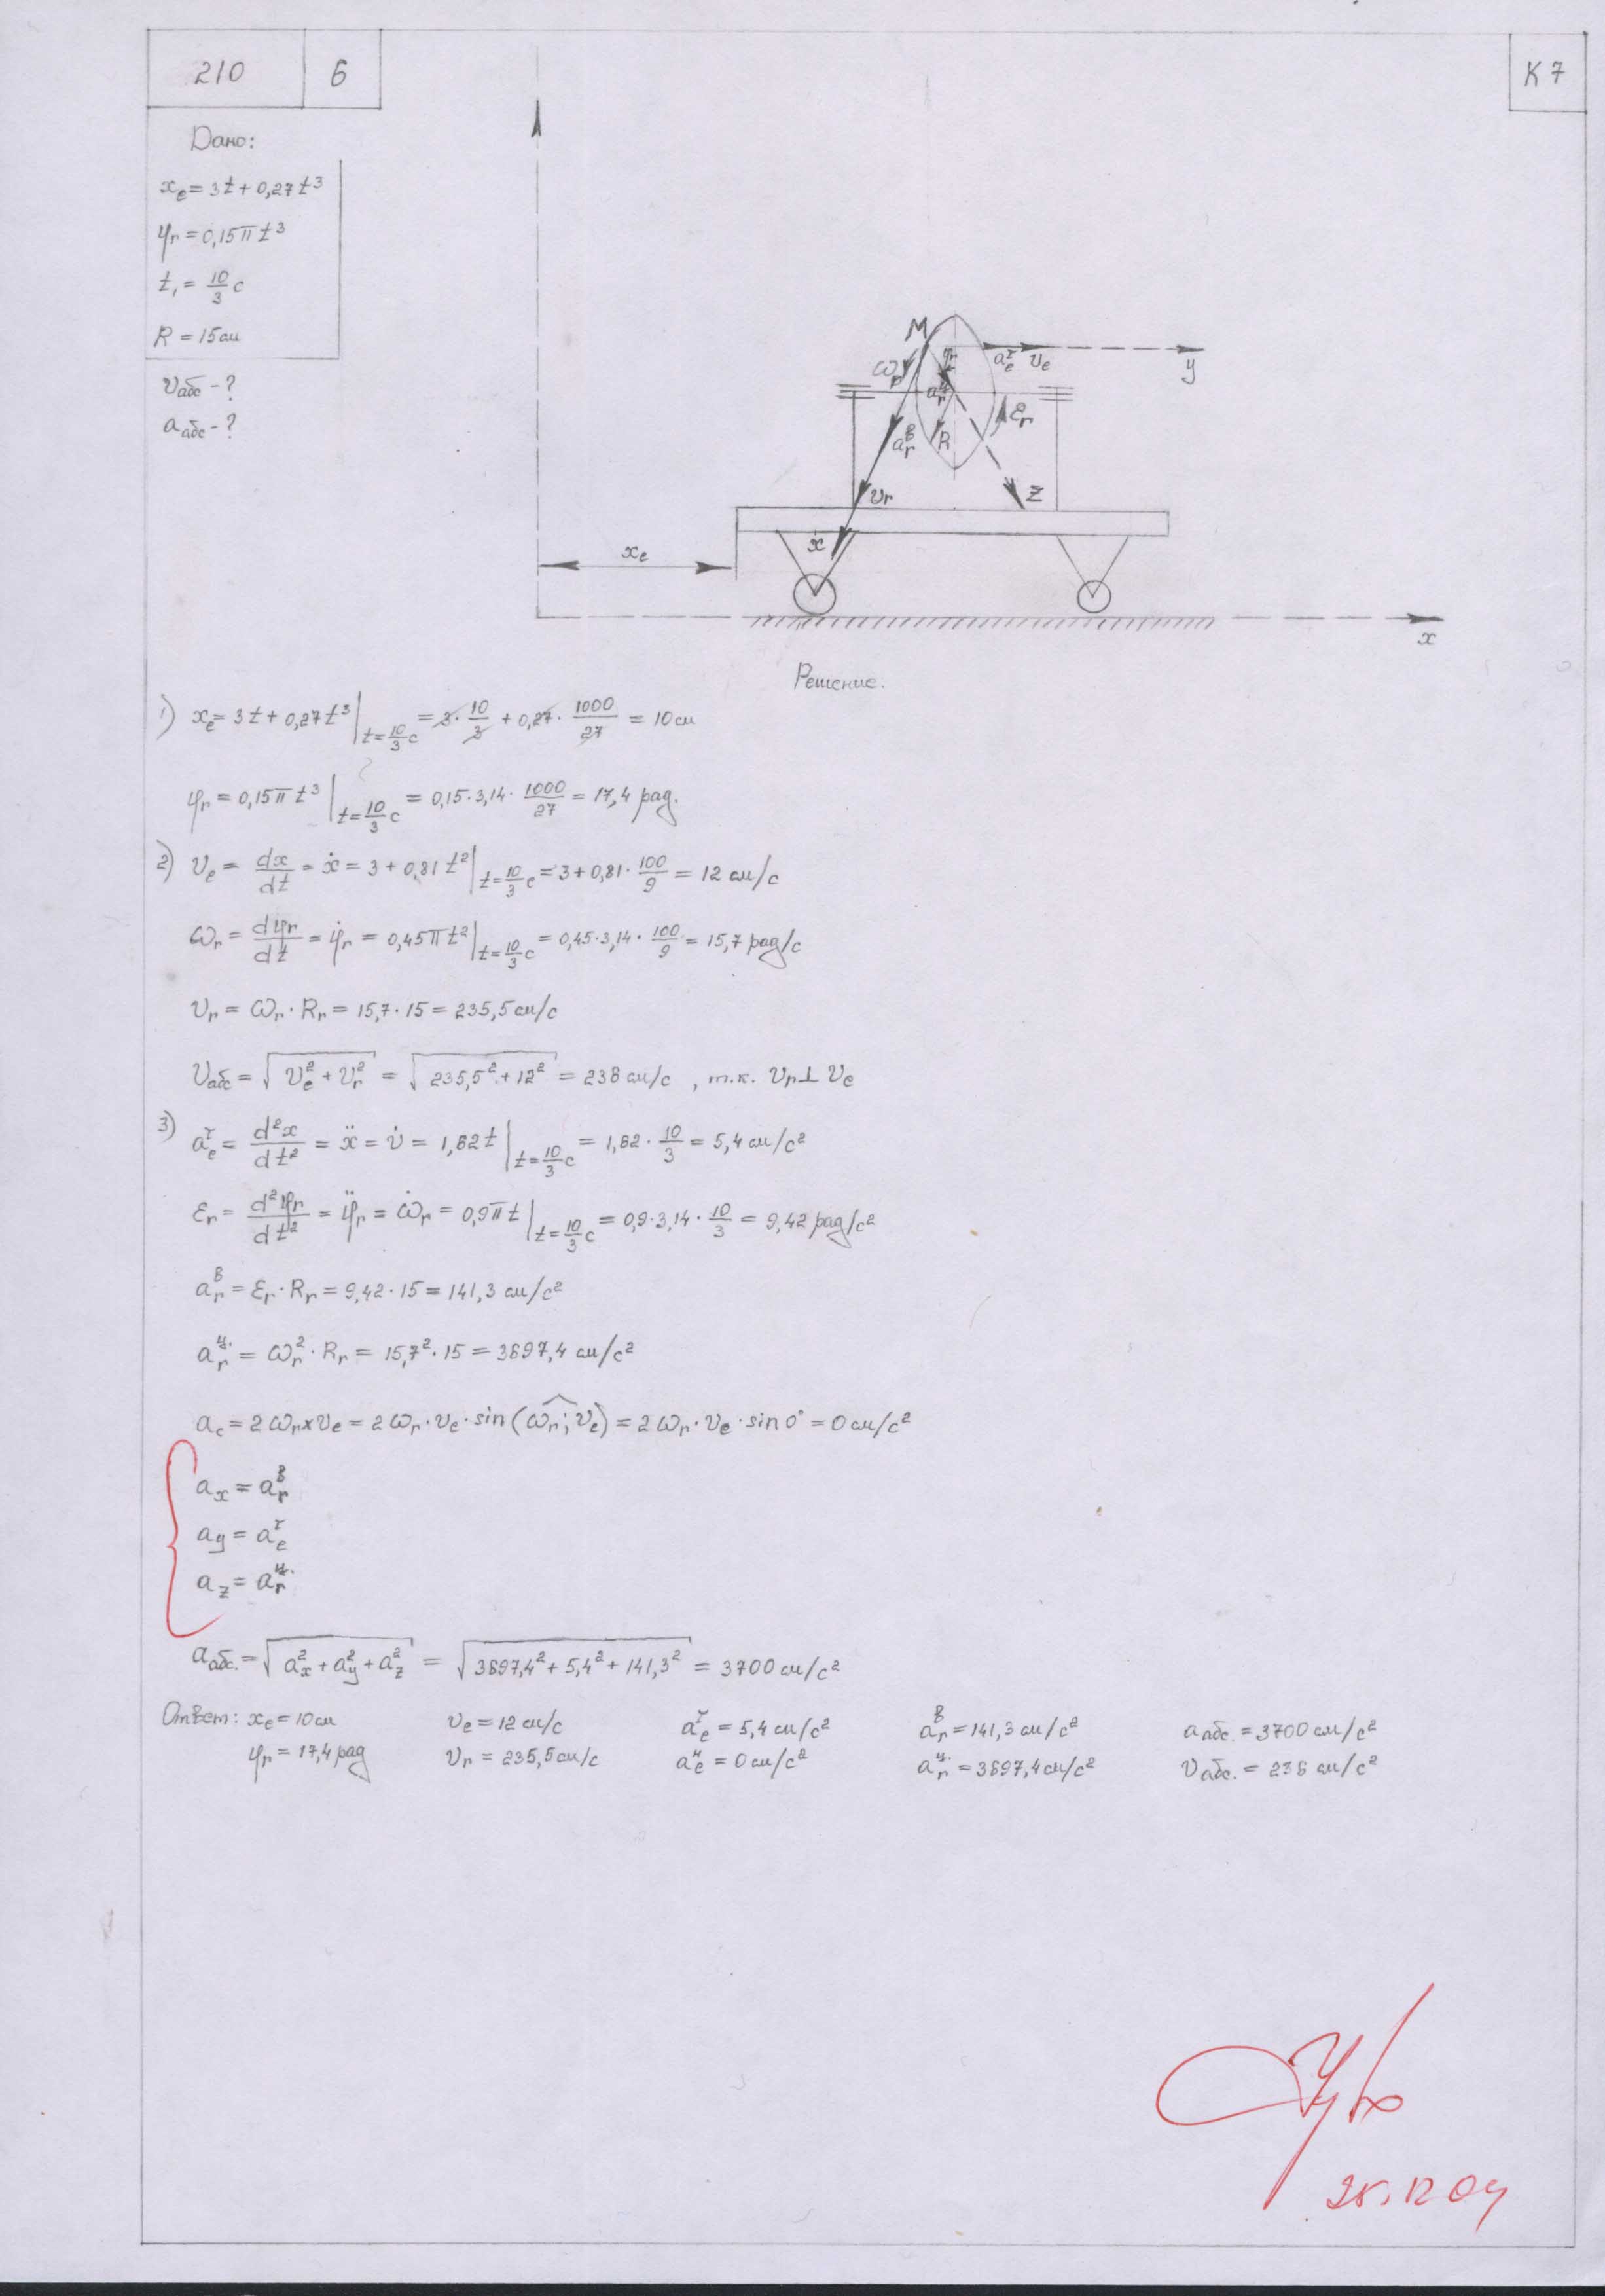 210 6 К7
Дано:
xe = 3t + 0,27t³
φr = 0,15πt³
t₁ = 10/3 с
R = 15 см
vабс - ?
aабс - ?
M
ωr
φr
aeτ ve
y
arц
εr
arв
R
vr
z
x
xe
x
Решение.
1) xe = 3t + 0,27t³ |t=10/3 с = 3 · 10/3 + 0,27 · 1000/27 = 10 см
φr = 0,15πt³ |t=10/3 с = 0,15 · 3,14 · 1000/27 = 17,4 рад.
2) ve = dx/dt = ẋ = 3 + 0,81t² |t=10/3 с = 3 + 0,81 · 100/9 = 12 см/с
ωr = dφr/dt = φ̇r = 0,45πt² |t=10/3 с = 0,45 · 3,14 · 100/9 = 15,7 рад/с
vr = ωr · Rr = 15,7 · 15 = 235,5 см/с
vабс = √(ve² + vr²) = √(235,5² + 12²) = 236 см/с , т.к. vr ⊥ ve
3) aeτ = d²x/dt² = ẍ = v̇ = 1,62t |t=10/3 с = 1,62 · 10/3 = 5,4 см/с²
εr = d²φr/dt² = φ̈r = ω̇r = 0,9πt |t=10/3 с = 0,9 · 3,14 · 10/3 = 9,42 рад/с²
arв = εr · Rr = 9,42 · 15 = 141,3 см/с²
arц. = ωr² · Rr = 15,7² · 15 = 3697,4 см/с²
ac = 2ωr × ve = 2ωr · ve · sin(ωr; ve) = 2ωr · ve · sin 0° = 0 см/с²
ax = arв
ay = aeτ
az = arц.
aабс. = √(ax² + ay² + az²) = √(3697,4² + 5,4² + 141,3²) = 3700 см/с²
Ответ: xe = 10 см ve = 12 см/с aeτ = 5,4 см/с² arв = 141,3 см/с² aабс. = 3700 см/с²
φr = 17,4 рад vr = 235,5 см/с aeн = 0 см/с² arц. = 3697,4 см/с² vабс. = 236 см/с²